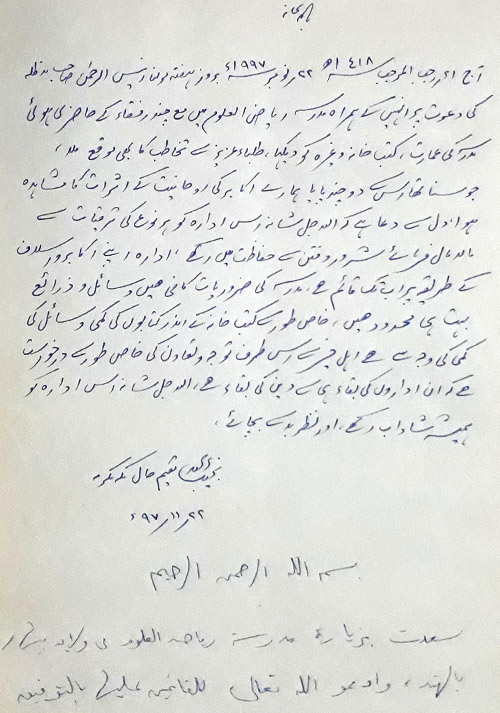 باسمہ سبحانہ
آج ۲۱ رجب المرجب ۱۴۱۸ھ ۲۲ نومبر ۱۹۹۷ء بروز ہفتہ مولانا انیس الرحمٰن صاحب مدظلہ
کی دعوت پر انہیں کے ہمراہ مدرسہ ریاض العلوم میں مع چند رفقاء کے حاضری ہوئی
مدرسہ کی عمارت، کتب خانہ وغیرہ کو دیکھا، طلباء عزیز سے تخاطب کا بھی موقع ملا،
جو سنا تھا اس سے دو چند پایا ہمارے اکابر کی روحانیت کے اثرات کا مشاہدہ
ہوا دل سے دعا ہے کہ اللہ جل شانہ اس ادارہ کو ہر نوع کی ترقیات سے
مالا مال فرمائے شرور وفتن سے حفاظت میں رکھے، ادارہ اپنے اکابر و اسلاف
کے طریقہ پر اب تک قائم ہے، مدرسہ کی ضروریات کافی ہیں وسائل و ذرائع
بہت ہی محدود ہیں، خاص طور سے کتب خانہ کے اندر کتابوں کی کمی وسائل کی
کمی کی وجہ سے ہے اہل خیر سے اس طرف توجہ وتعاون کی خاص طور سے درخواست
ہے کہ ان اداروں کی بقاء ہی سے دین کی بقاء ہے، اللہ جل شانہ اس ادارہ کو
ہمیشہ شاداب رکھے، اور نظر بد سے بچائے،
مقیم حال مکہ مکرمہ
۲۲/۱۱/۹۷ء
بسم الله الرحمن الرحيم
سعدت بزيارة مدرسة رياض العلوم في ولاية بيهار
بالهند، وادعو الله تعالى للقائمين عليها بالتوفيق